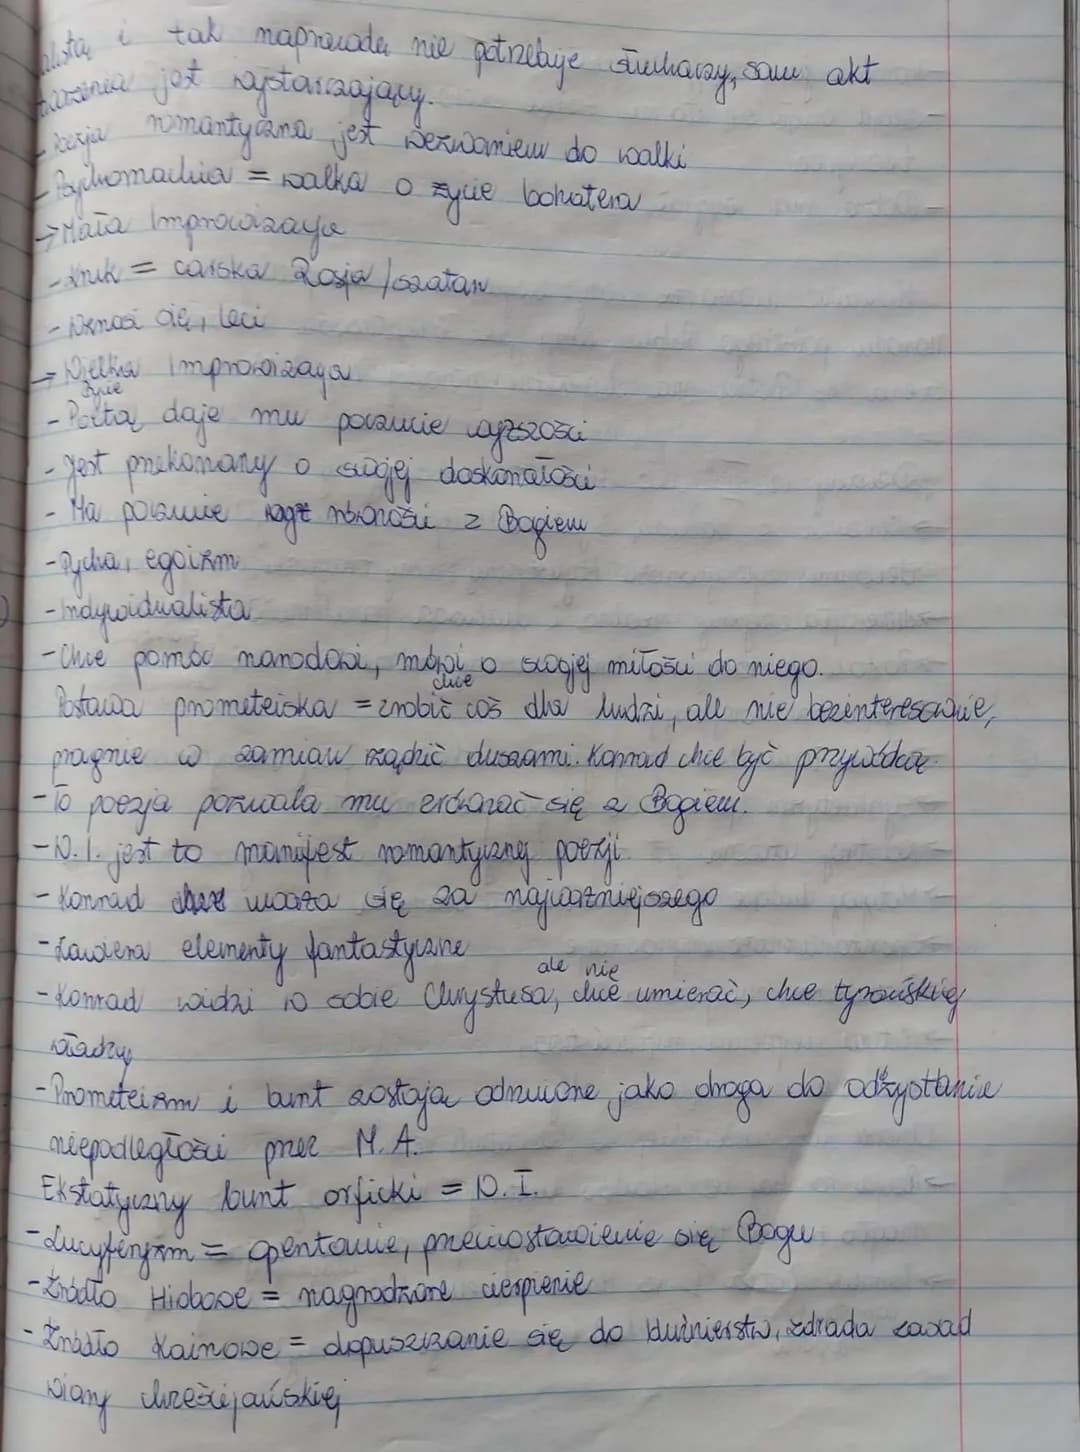 i tak naprawdę nie potrzebuje słuchaczy, sam akt
jest wystarczający.
- Poezja romantyczna jest wezwaniem do walki
- Psychomachia = walka o życie bohatera
→ Mała Improwizacja
- kruk = carska Rosja / szatan
- Wznosi się, leci
→ Wielka Improwizacja
życie
- Poetą daje mu poczucie wyższości
- Jest przekonany o swojej doskonałości
- Ma poczucie równości z Bogiem
- Pycha, egoizm
- Indywidualista
- Chce pomóc narodowi, mówi o swojej miłości do niego.
chce
Postawa prometejska = zrobić coś dla ludzi, ale nie bezinteresownie,
pragnie w zamian rządzić duszami. Konrad chce być przywódcą.
- To poezja pozwala mu zrównać się z Bogiem.
- W. I. jest to manifest romantycznej poezji
- Konrad uważa się za najważniejszego
- Zawiera elementy fantastyczne
ale nie
- Konrad widzi w sobie Chrystusa, chce umierać, chce tyrańskiej
władzy
- Prometeizm i bunt zostają odrzucone jako droga do odzyskania
niepodległości przez M. A.
Ekstatyczny bunt orficki = W. I.
- Lucyferyzm = opętanie, przeciwstawienie się Bogu
- Źródło Hiobowe = nagrodzone cierpienie
- Źródło Kainowe = dopuszczanie się do bluźnierstw, zdrada zasad
wiary chrześcijańskiej